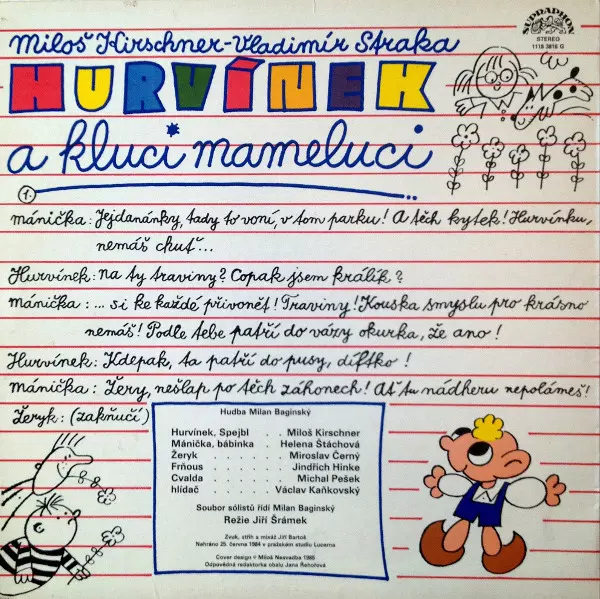 Miloš Kirschner-Vladimír Straka
SUPRAPHON
STEREO
1118 3816 G
HURVÍNEK
a kluci mameluci
1.
Mánička: Jejdanánky, tady to voní, v tom parku! A těch kytek! Hurvínku,
nemáš chuť...
Hurvínek: Na ty traviny? Copak jsem králík?
Mánička: ... si ke každé přivonět! Traviny! Kouska smyslu pro krásno
nemáš! Podle tebe patří do vázy okurka, že ano!
Hurvínek: Kdepak, ta patří do pusy, díftko!
Mánička: Žery, nešlap po těch záhonech! Ať tu nádheru nepolámeš!
Žeryk: (zakňučí)
Hudba Milan Baginský
Hurvínek, Spejbl . Miloš Kirschner
Mánička, bábinka . Helena Štáchová
Žeryk . . . . Miroslav Černý
Frňous . . . . Jindřich Hinke
Cvalda . . . . Michal Pešek
hlídač . . . . Václav Kaňkovský
Soubor sólistů řídí Milan Baginský
Režie Jiří Šrámek
Zvuk, střih a mixáž Jiří Bartoš
Nahráno 25. června 1984 v pražském studiu Lucerna
Cover design © Miloš Nesvadba 1985
Odpovědná redaktorka obalu Jana Řehořová